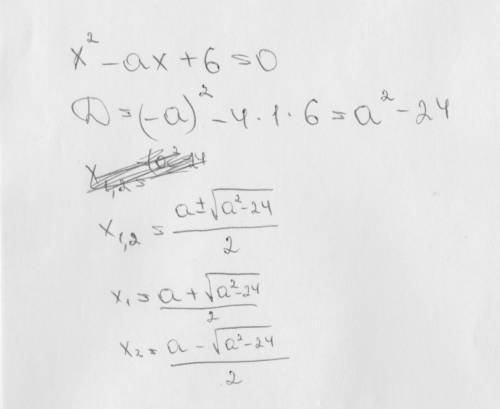 x² - ax + 6 = 0
D = (-a)² - 4 · 1 · 6 = a² - 24
x₁,₂ = (a ± √(a² - 24)) / 2
x₁ = (a + √(a² - 24)) / 2
x₂ = (a - √(a² - 24)) / 2